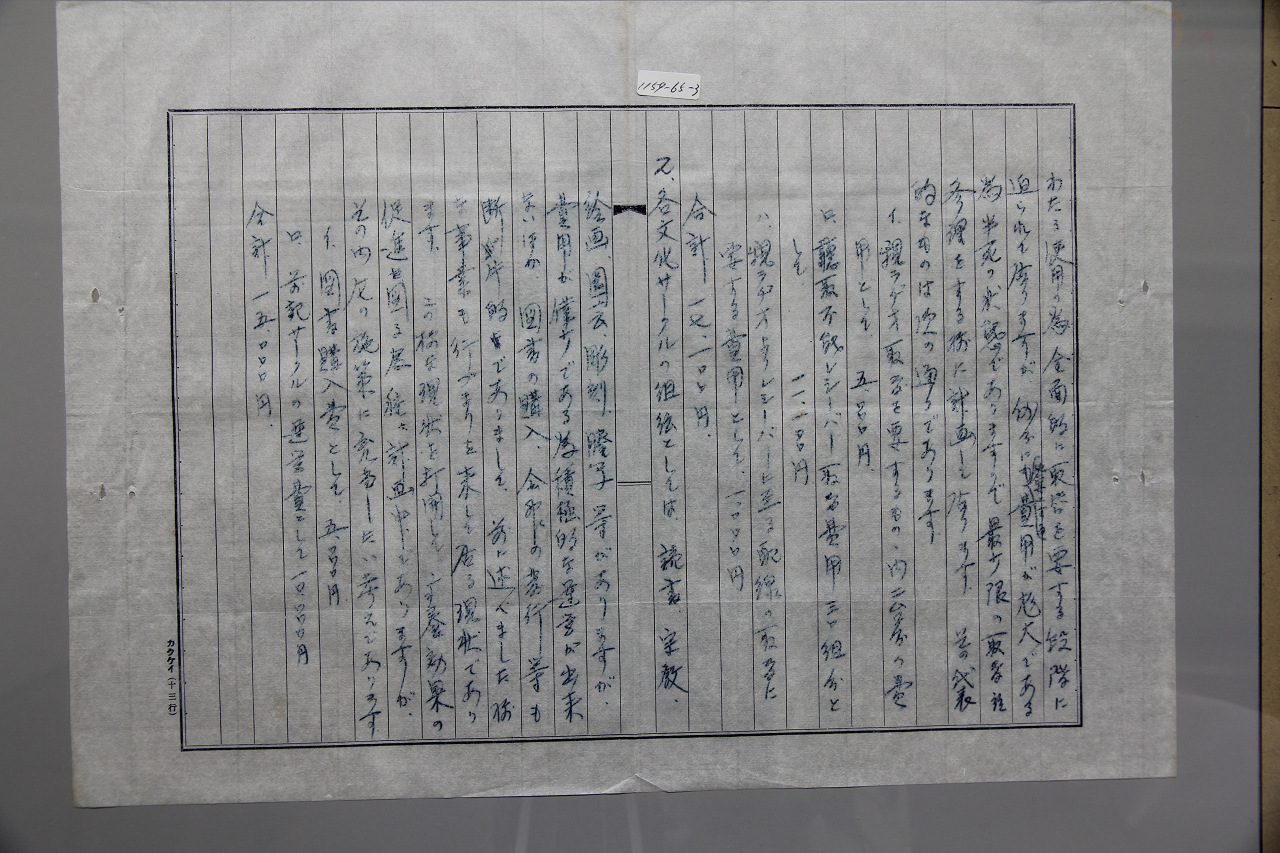 1159-65-3
わたる使用の為全面的に取替を要する段階に
迫られて居りますが、何分にも修理費用が尨大である
為半死の状態でありますので最少限の取替
修理をする様に計画して居ります。その代表
的なものは次の通りであります
イ、親ラヂオ取替を要するもの、内二台分の費
用として 五、〇〇〇円、
ロ、聽取不能レシーバー取替費用三〇組分と
して 一一、一〇〇円
ハ、親ラヂオよりレシーバーに至る配線の取替に
要する費用として、一、〇〇〇円
合計 一七、一〇〇円、
2、各文化サークルの組織としては、読書、宗教、
絵画、図芸、彫刻、習字 等がありますが、
費用が僅少である為積極的な運営が出来
ないほか、図書の購入、会印の発行等も
断片的でありまして 前に述べました様
な事業も行づまりを来して居る現状であり
ます。この様な現状を打開して、療養効果の
促進を図る為続々計画中でありますが、
その内左の施策に充当したい考えであります
イ、図書購入費として 五、〇〇〇円
ロ、前記サークルの運営費として一〇、〇〇〇円
合計 一五、〇〇〇円、
カクケイ(十三行)